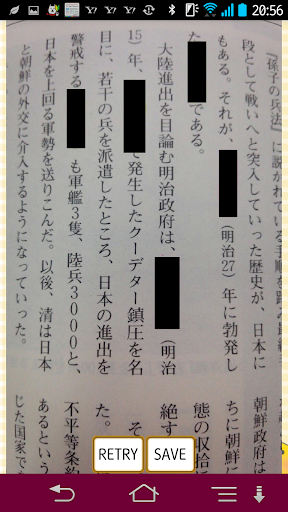 20:56
『孫子の兵法』に説かれている手順を踏み最終手
段として戦いへと突入していった歴史が、日本に
もある。それが、（明治27）年に勃発し
た である。
大陸進出を目論む明治政府は、（明治
15）年、 で発生したクーデター鎮圧を名
目に、若干の兵を派遣したところ、日本の進出を
警戒する も軍艦3隻、陸兵3000と、
日本を上回る軍勢を送りこんだ。以後、清は日本
と朝鮮の外交に介入するようになっていった。
朝鮮政府は
ちに朝鮮に
態の収拾に
絶す
そ
た。
不平等条約
あるという
じた国家で
RETRY
SAVE